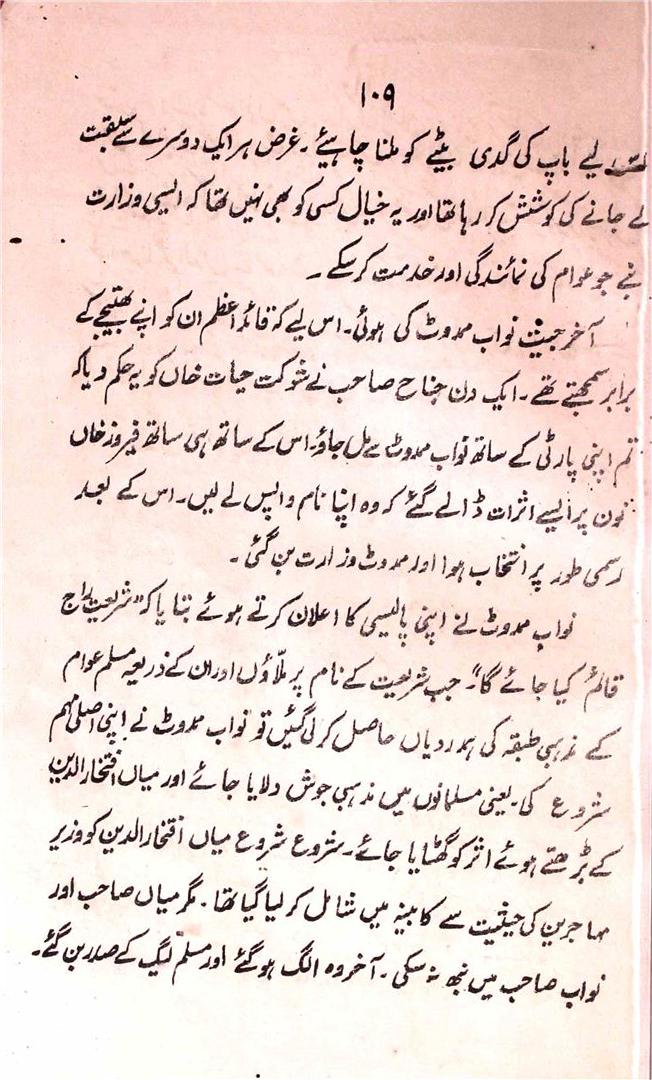 ۱۰۹
لیے باپ کی گدی بیٹے کو ملنا چاہیئے ۔ غرض ہر ایک دوسرے سے سبقت
لے جانے کی کوشش کر رہا تھا اور یہ خیال کسی کو بھی نہیں تھا کہ ایسی وزارت
بنے جو عوام کی نمائندگی اور خدمت کر سکے ۔
آخر جیت نواب ممدوٹ کی ہوئی۔ اس لیے کہ قائد اعظم ان کو اپنے بھتیجے کے
برابر سمجھتے تھے ۔ ایک دن جناح صاحب نے شوکت حیات خاں کو یہ حکم دیا کہ
تم اپنی پارٹی کے ساتھ نواب ممدوٹ سے مل جاؤ۔ اس کے ساتھ ہی ساتھ فیروز خاں
نون پر ایسے اثرات ڈالے گئے کہ وہ اپنا نام واپس لے لیں۔ اس کے بعد
رسمی طور پر انتخاب ہوا اور ممدوٹ وزارت بن گئی ۔
نواب ممدوٹ نے اپنی پالیسی کا اعلان کرتے ہوئے بتایا کہ "شریعت راج
قائم کیا جائے گا"۔ جب شریعت کے نام پر ملّاؤں اور ان کے ذریعہ مسلم عوام
کے مذہبی طبقہ کی ہمدردیاں حاصل کر لی گئیں تو نواب ممدوٹ نے اپنی اصلی مہم
شروع کی۔ یعنی مسلمانوں میں مذہبی جوش دلایا جائے اور میاں افتخار الدین
کے بڑھتے ہوئے اثر کو گھٹایا جائے۔ شروع شروع میاں افتخار الدین کو وزیر
مہاجرین کی حیثیت سے کابینہ میں شامل کر لیا گیا تھا ۔ مگر میاں صاحب اور
نواب صاحب میں نبھ نہ سکی ۔ آخر وہ الگ ہو گئے اور مسلم لیگ کے صدر بن گئے۔